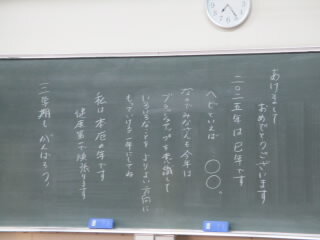 あけまして
おめでとうございます
二〇二五年は巳年です
ヘビといえば 〇〇。
なのでみなさんも今年は
ブラッシュアップを意識して
いろいろなことをよりよい方向に
もっていける一年にしてね
私は本厄の年です
健康第一で頑張ります
三学期も がんばろう！